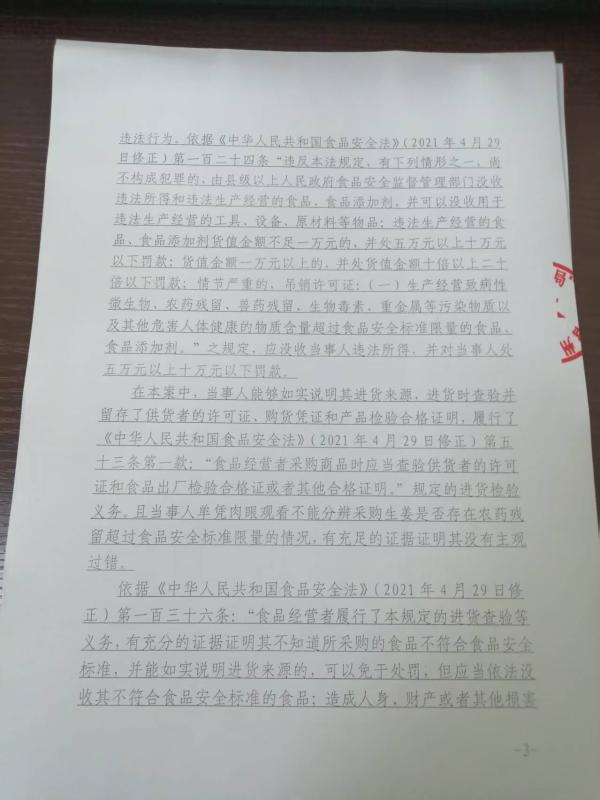 违法行为。依据《中华人民共和国食品安全法》(2021年4月29
日修正)第一百二十四条“违反本法规定，有下列情形之一，尚
不构成犯罪的，由县级以上人民政府食品安全监督管理部门没收
违法所得和违法生产经营的食品、食品添加剂，并可以没收用于
违法生产经营的工具、设备、原材料等物品；违法生产经营的食
品、食品添加剂货值金额不足一万元的，并处五万元以上十万元
以下罚款；货值金额一万元以上的，并处货值金额十倍以上二十
倍以下罚款；情节严重的，吊销许可证：（一）生产经营致病性
微生物、农药残留、兽药残留、生物毒素、重金属等污染物质以
及其他危害人体健康的物质含量超过食品安全标准限量的食品、
食品添加剂。”之规定，应没收当事人违法所得，并对当事人处
五万元以上十万元以下罚款。
在本案中，当事人能够如实说明其进货来源，进货时查验并
留存了供货者的许可证、购货凭证和产品检验合格证明，履行了
《中华人民共和国食品安全法》(2021年4月29日修正)第五
十三条第一款：“食品经营者采购商品时应当查验供货者的许可
证和食品出厂检验合格证或者其他合格证明。”规定的进货检验
义务。且当事人单凭肉眼观看不能分辨采购生姜是否存在农药残
留超过食品安全标准限量的情况，有充足的证据证明其没有主观
过错。
依据《中华人民共和国食品安全法》(2021年4月29日修
正)第一百三十六条：“食品经营者履行了本规定的进货查验等
义务，有充分的证据证明其不知道所采购的食品不符合食品安全
标准，并能如实说明进货来源的，可以免于处罚，但应当依法没
收其不符合食品安全标准的食品；造成人身、财产或者其他损害
-3-
局